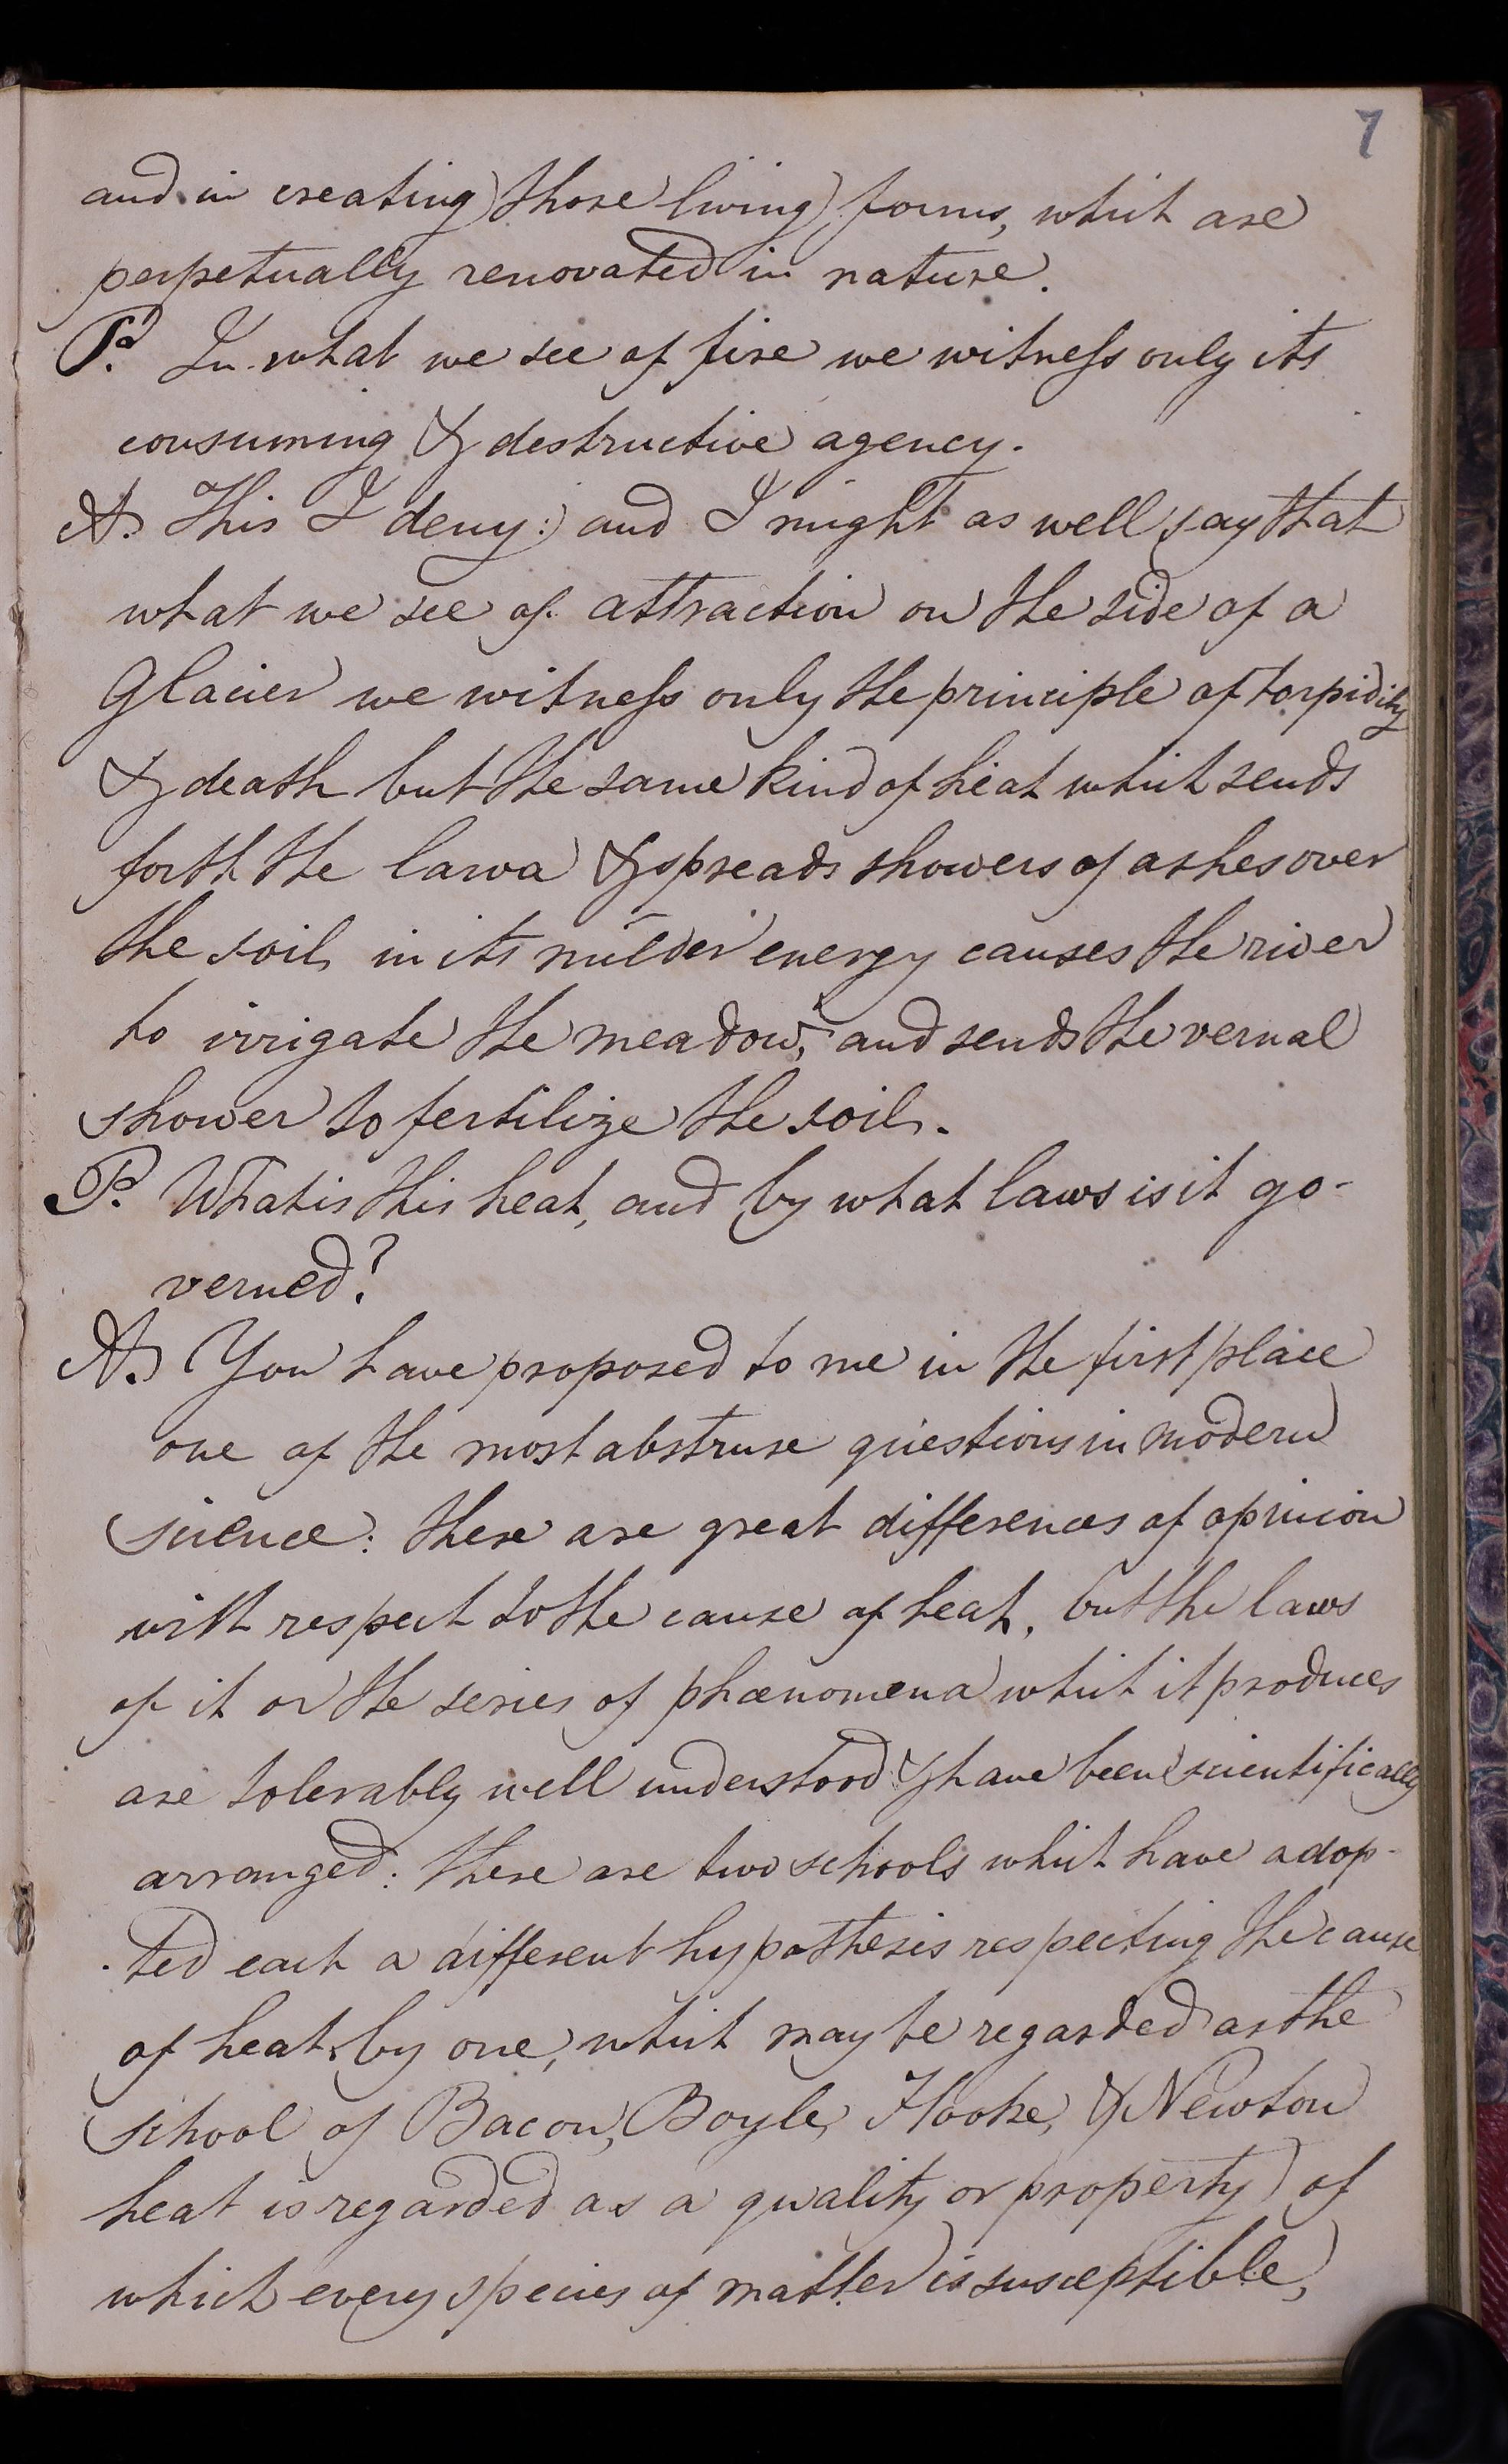 7
and in creating those living forms, which are
perpetually renovated in nature.
P. In what we see of fire we witness only its
consuming & destructive agency.
A. This I deny: and I might as well say that
what we see of attraction on the side of a
Glacier we witness only the principle of torpidity
& death but the same kind of heat which sends
forth the larva & spreads showers of ashes over
the soil, in its milder energy causes the river
to irrigate the meadow, and sends the vernal
shower to fertilize the soil.
P. What is this heat, and by what laws is it go-
verned?
A. You have proposed to me in the first place
one of the most abstruse questions in modern
science: there are great differences of opinion
with respect to the cause of heat, but the laws
of it or the series of phænomena which it produces
are tolerably well understood & have been scientifically
arranged: there are two schools which have adop-
ted each a different hypothesis respecting the cause
of heat, by one, which may be regarded as the
school of Bacon, Boyle, Hooke, & Newton
heat is regarded as a quality or property of
which every species of matter is susceptible,